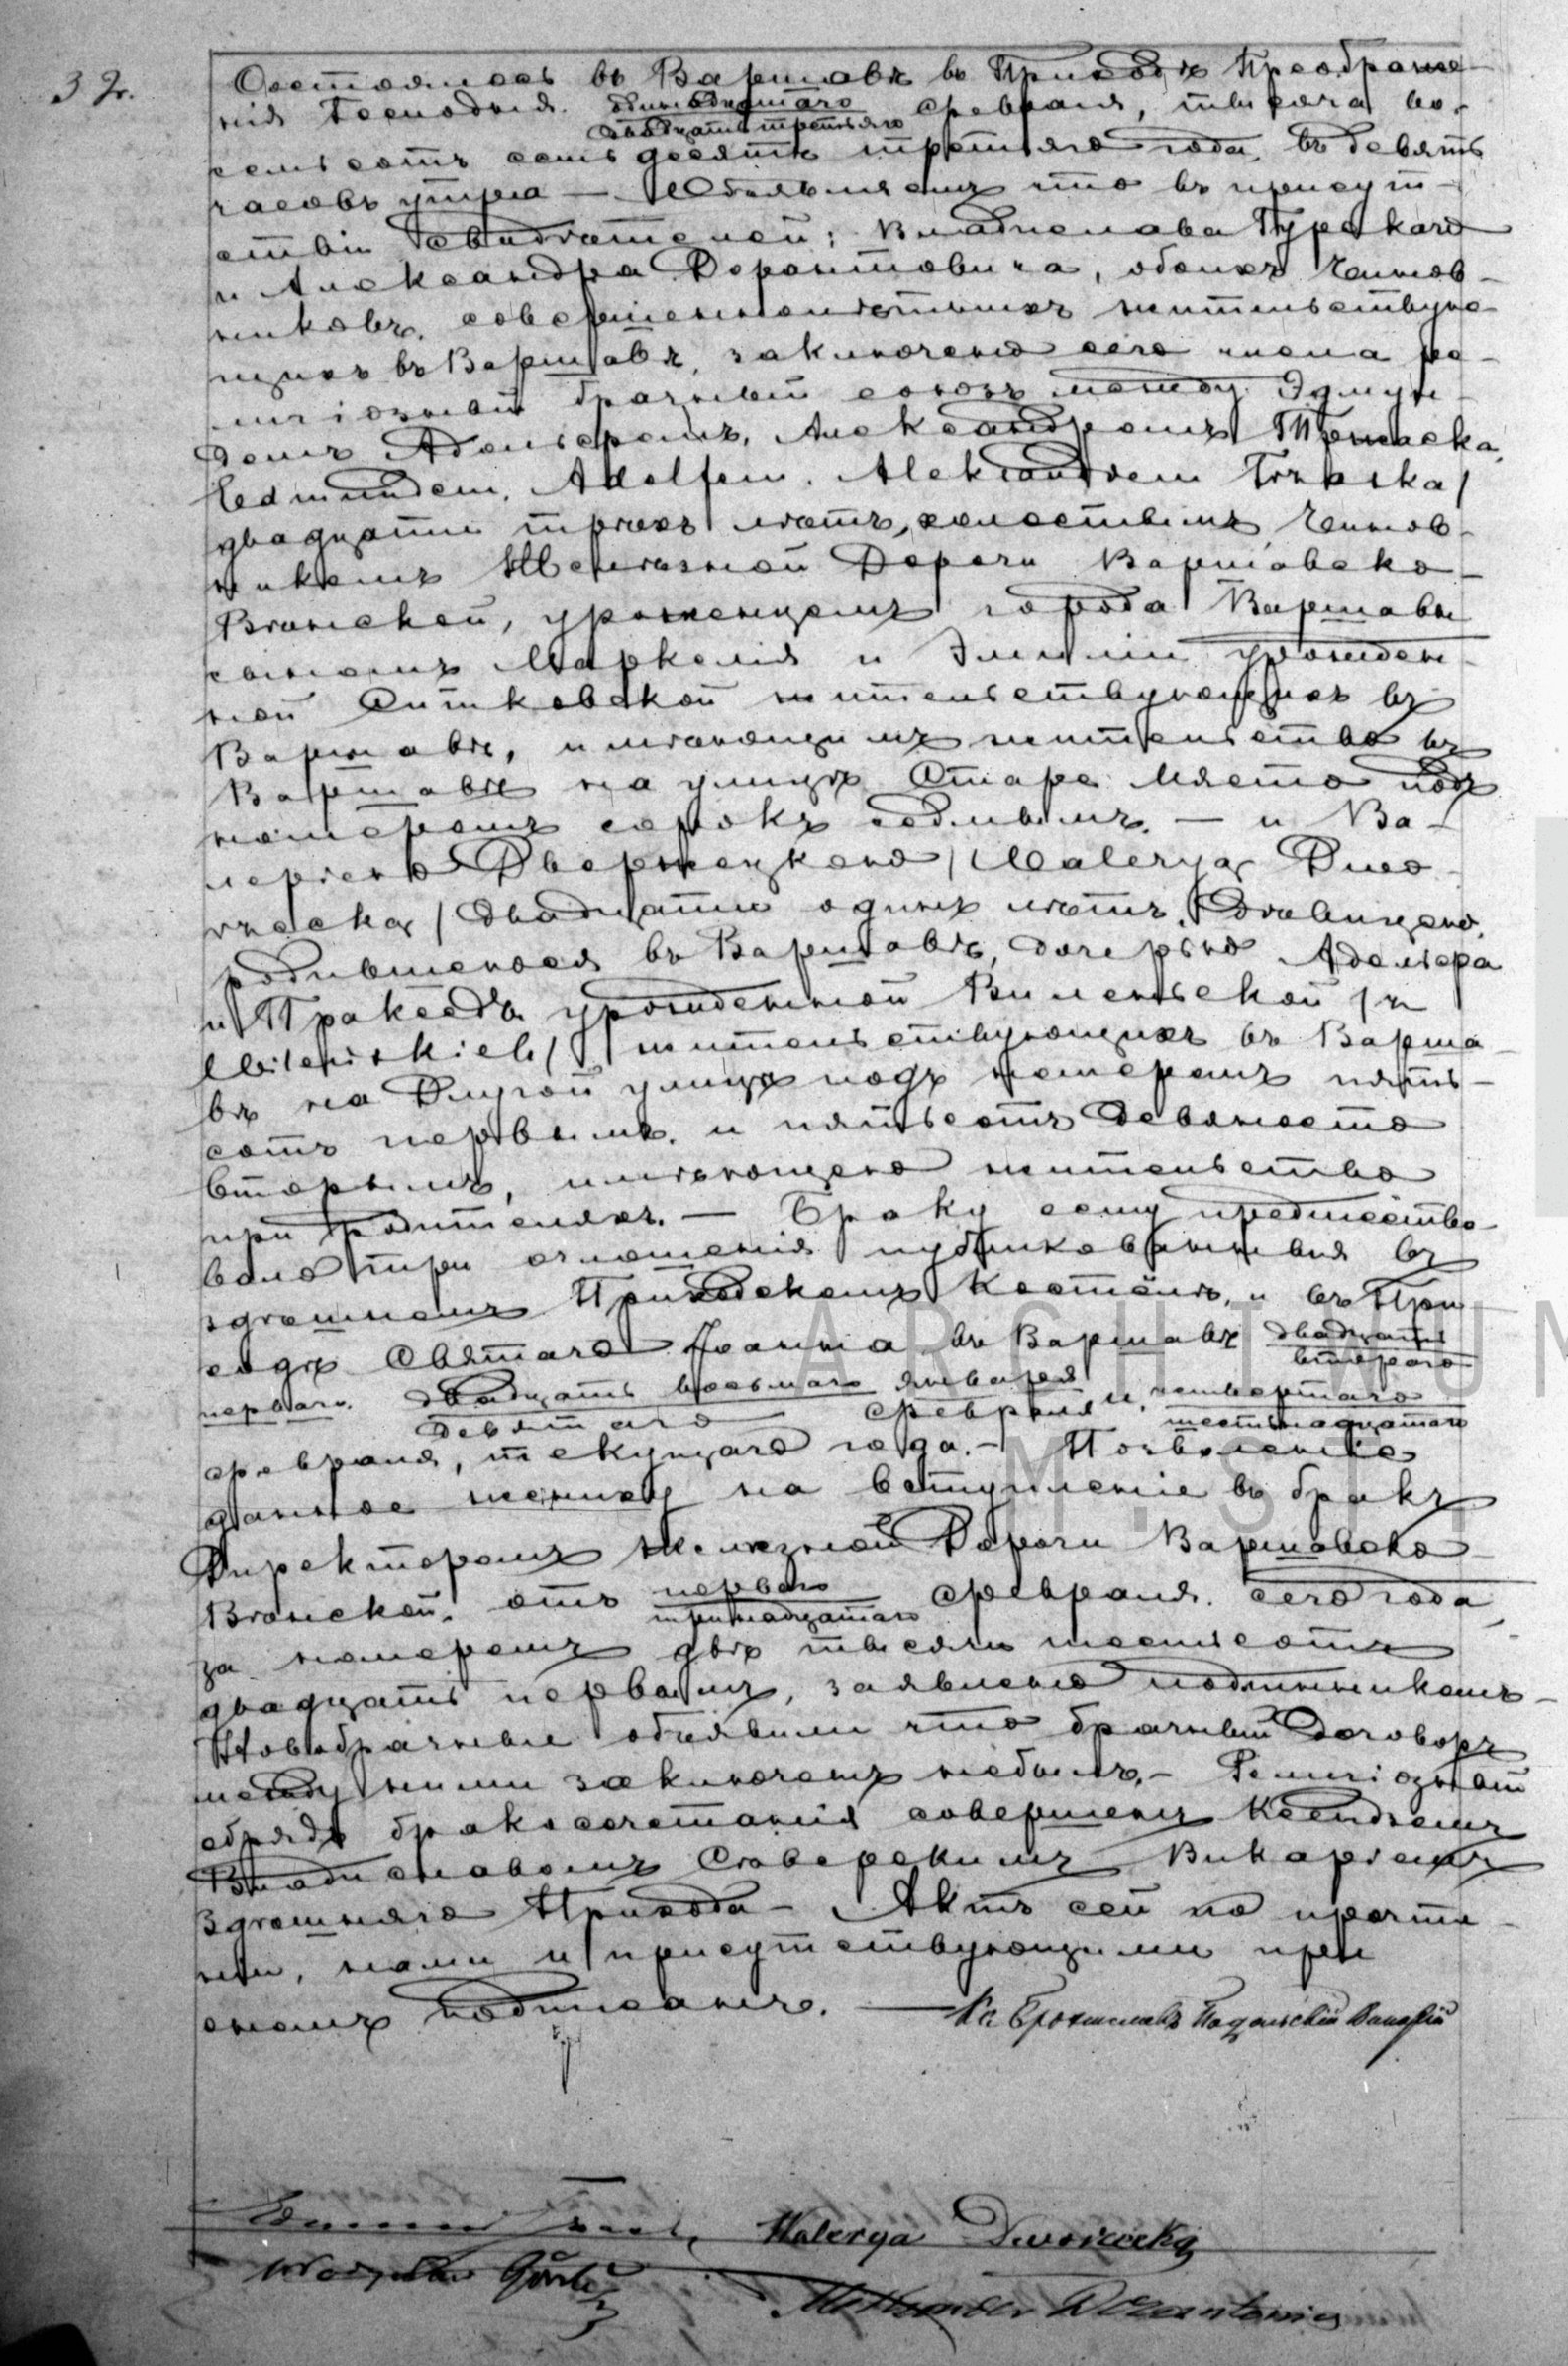 32.
Состоялось въ Варшавѣ въ Приходѣ Преображе-
нія Господня. одинадцатаго Февраля, тысяча во-
двадцать третьяго
семьсотъ семьдесятъ третьяго года, въ девять
часовъ утра — Объявляемъ что въ присут-
ствіи свидѣтелей: Владислава Гурскаго
и Александра Дорантовича, обоихъ чинов-
никовъ, совершеннолѣтнихъ жительствую-
щихъ въ Варшавѣ, заключенъ сего числа ре-
лигіозный брачный союзъ между Эдмун-
домъ Адольфомъ, Александромъ Тржаска,
Edmundem, Adolfem, Aleksandrem Trzaska/
двадцати трехъ лѣтъ, холостымъ, чинов-
никомъ Желѣзной Дороги Варшавско-
Вѣнской, уроженцемъ города Варшавы
сыномъ Маркелія и Эмиліи урожден-
ной Ситковской жительствующихъ въ
Варшавѣ, имѣющимъ жительство въ
Варшавѣ на улицѣ Старе Място подъ
номеромъ сорокъ седмымъ. — и Ва-
леріею Дворжецкою /Waleryą Dwo-
rzecką/ двадцати одинъ лѣтъ, дѣвицею,
родившеюся въ Варшавѣ, дочерью Адольфа
и Пракседы урожденной Виленьской /z
Wileńskich/ жительствующихъ въ Варша-
вѣ на Длугой улицѣ подъ номеромъ пять-
сотъ первымъ и пятьсотъ девяносто
вторымъ, имѣющею жительство
при родителяхъ. — Браку сему предшество-
вало три оглашенія публикованныя въ
здѣшнемъ Приходскомъ Костёлѣ, и въ При
ходѣ Святаго Іоанна въ Варшавѣ двадцать
втораго
перваго. двадцать восьмаго января и, четвертаго
девятаго Февраля шестьнадцатаго
Февраля, текущаго года. — Позволеніе
данное жениху на вступленіе въ бракъ
Директоромъ желѣзной Дороги Варшавско
Вѣнской, отъ перваго Февраля. сего года,
тринадцатаго
за номеромъ двѣ тысячи шестьсотъ
двадцать первымъ, заявлено подлинникомъ —
Новобрачные объявили что брачный договоръ
между ними заключенъ небылъ. — Религіозный
обрядъ бракосочетанія совершенъ Ксендземъ
Владиславомъ Сѣверскимъ Викаріемъ
здѣшняго Прихода — Актъ сей по прочте-
ніи, нами и присутствующими при
ономъ подписанъ. — Кс
Walerya Dworzecka
Górski
Aleksander Dorantowicz
ARCHIWUM
M. ST.